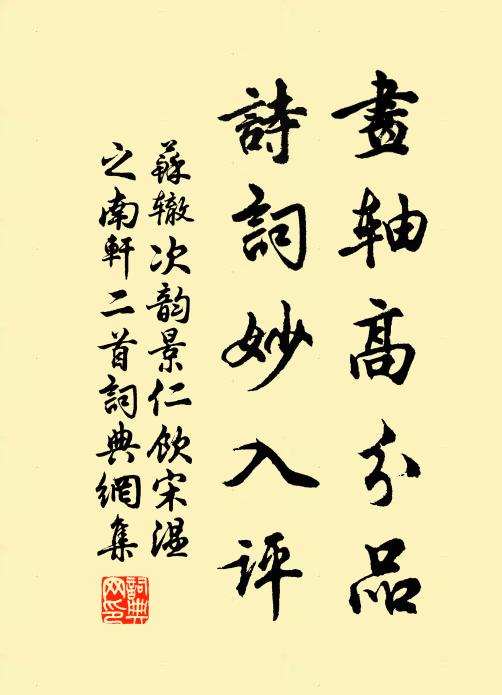 畫轴高分品
詩詞妙入评
蘇辙次韵景仁飲宋温
之南軒二首詞典網集
詞典网印